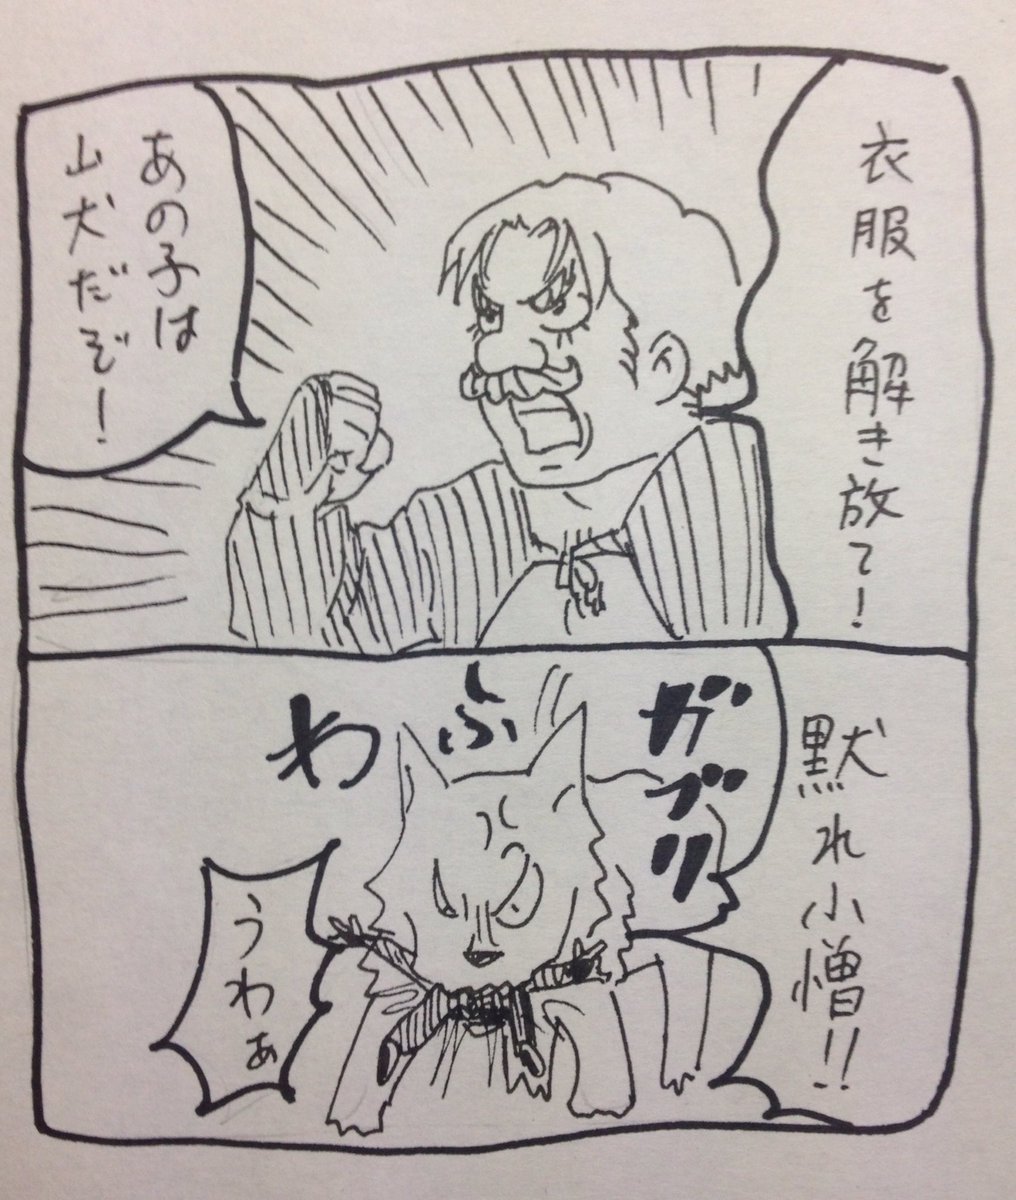 衣服を解き放て！
あの子は
山犬だぞ！
黙れ小憎!!
ガブリ
ふ
わ
うわぁ